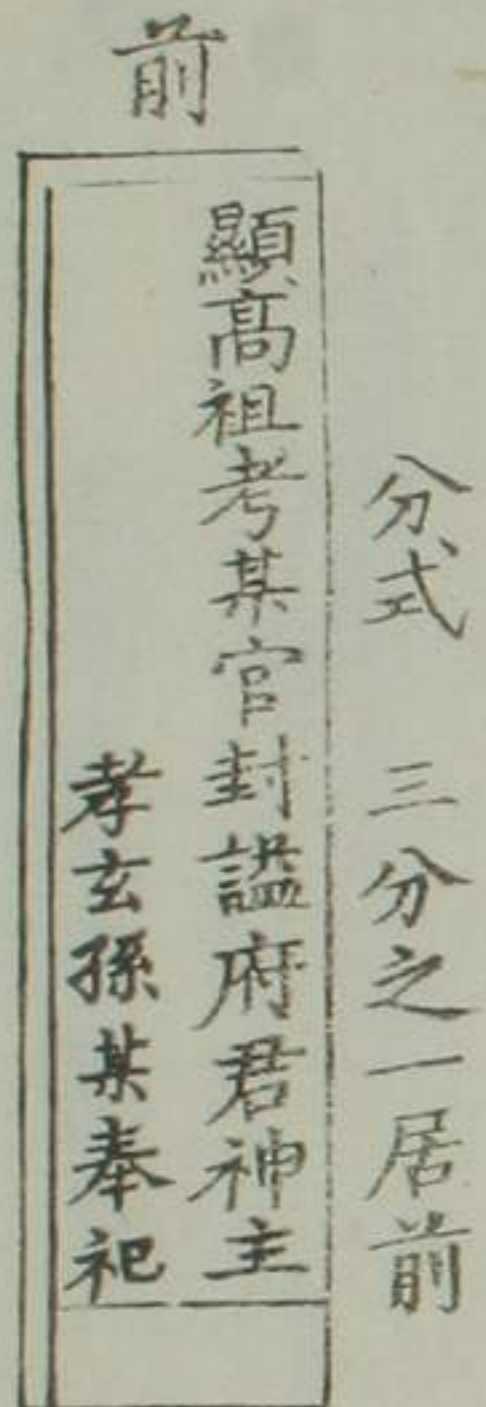 前
分式 三分之一居前
顯高祖考某官封謚府君神主
孝玄孫某奉祀